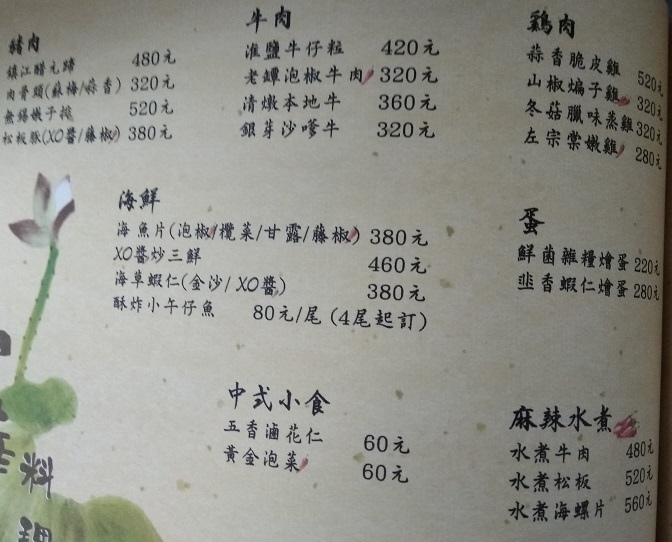 豬肉
鎮江醋元蹄 480元
肉骨頭(蘇梅/蒜香) 320元
無錫嫩子排 520元
松板豚(XO醬/藤椒) 380元
牛肉
淮鹽牛仔粒 420元
老罈泡椒牛肉 320元
清燉本地牛 360元
銀芽沙嗲牛 320元
鷄肉
蒜香脆皮雞 520元
山椒煸子雞 320元
冬菇臘味蒸雞 320元
左宗棠嫩雞 280元
海鮮
海魚片(泡椒/欖菜/甘露/藤椒) 380元
XO醬炒三鮮 460元
海草蝦仁(金沙/XO醬) 380元
酥炸小午仔魚 80元/尾 (4尾起訂)
蛋
鮮菌雜糧燴蛋 220元
韭香蝦仁燴蛋 280元
中式小食
五香滷花仁 60元
黃金泡菜 60元
麻辣水煮
水煮牛肉 480元
水煮松板 520元
水煮海螺片 560元
料
理